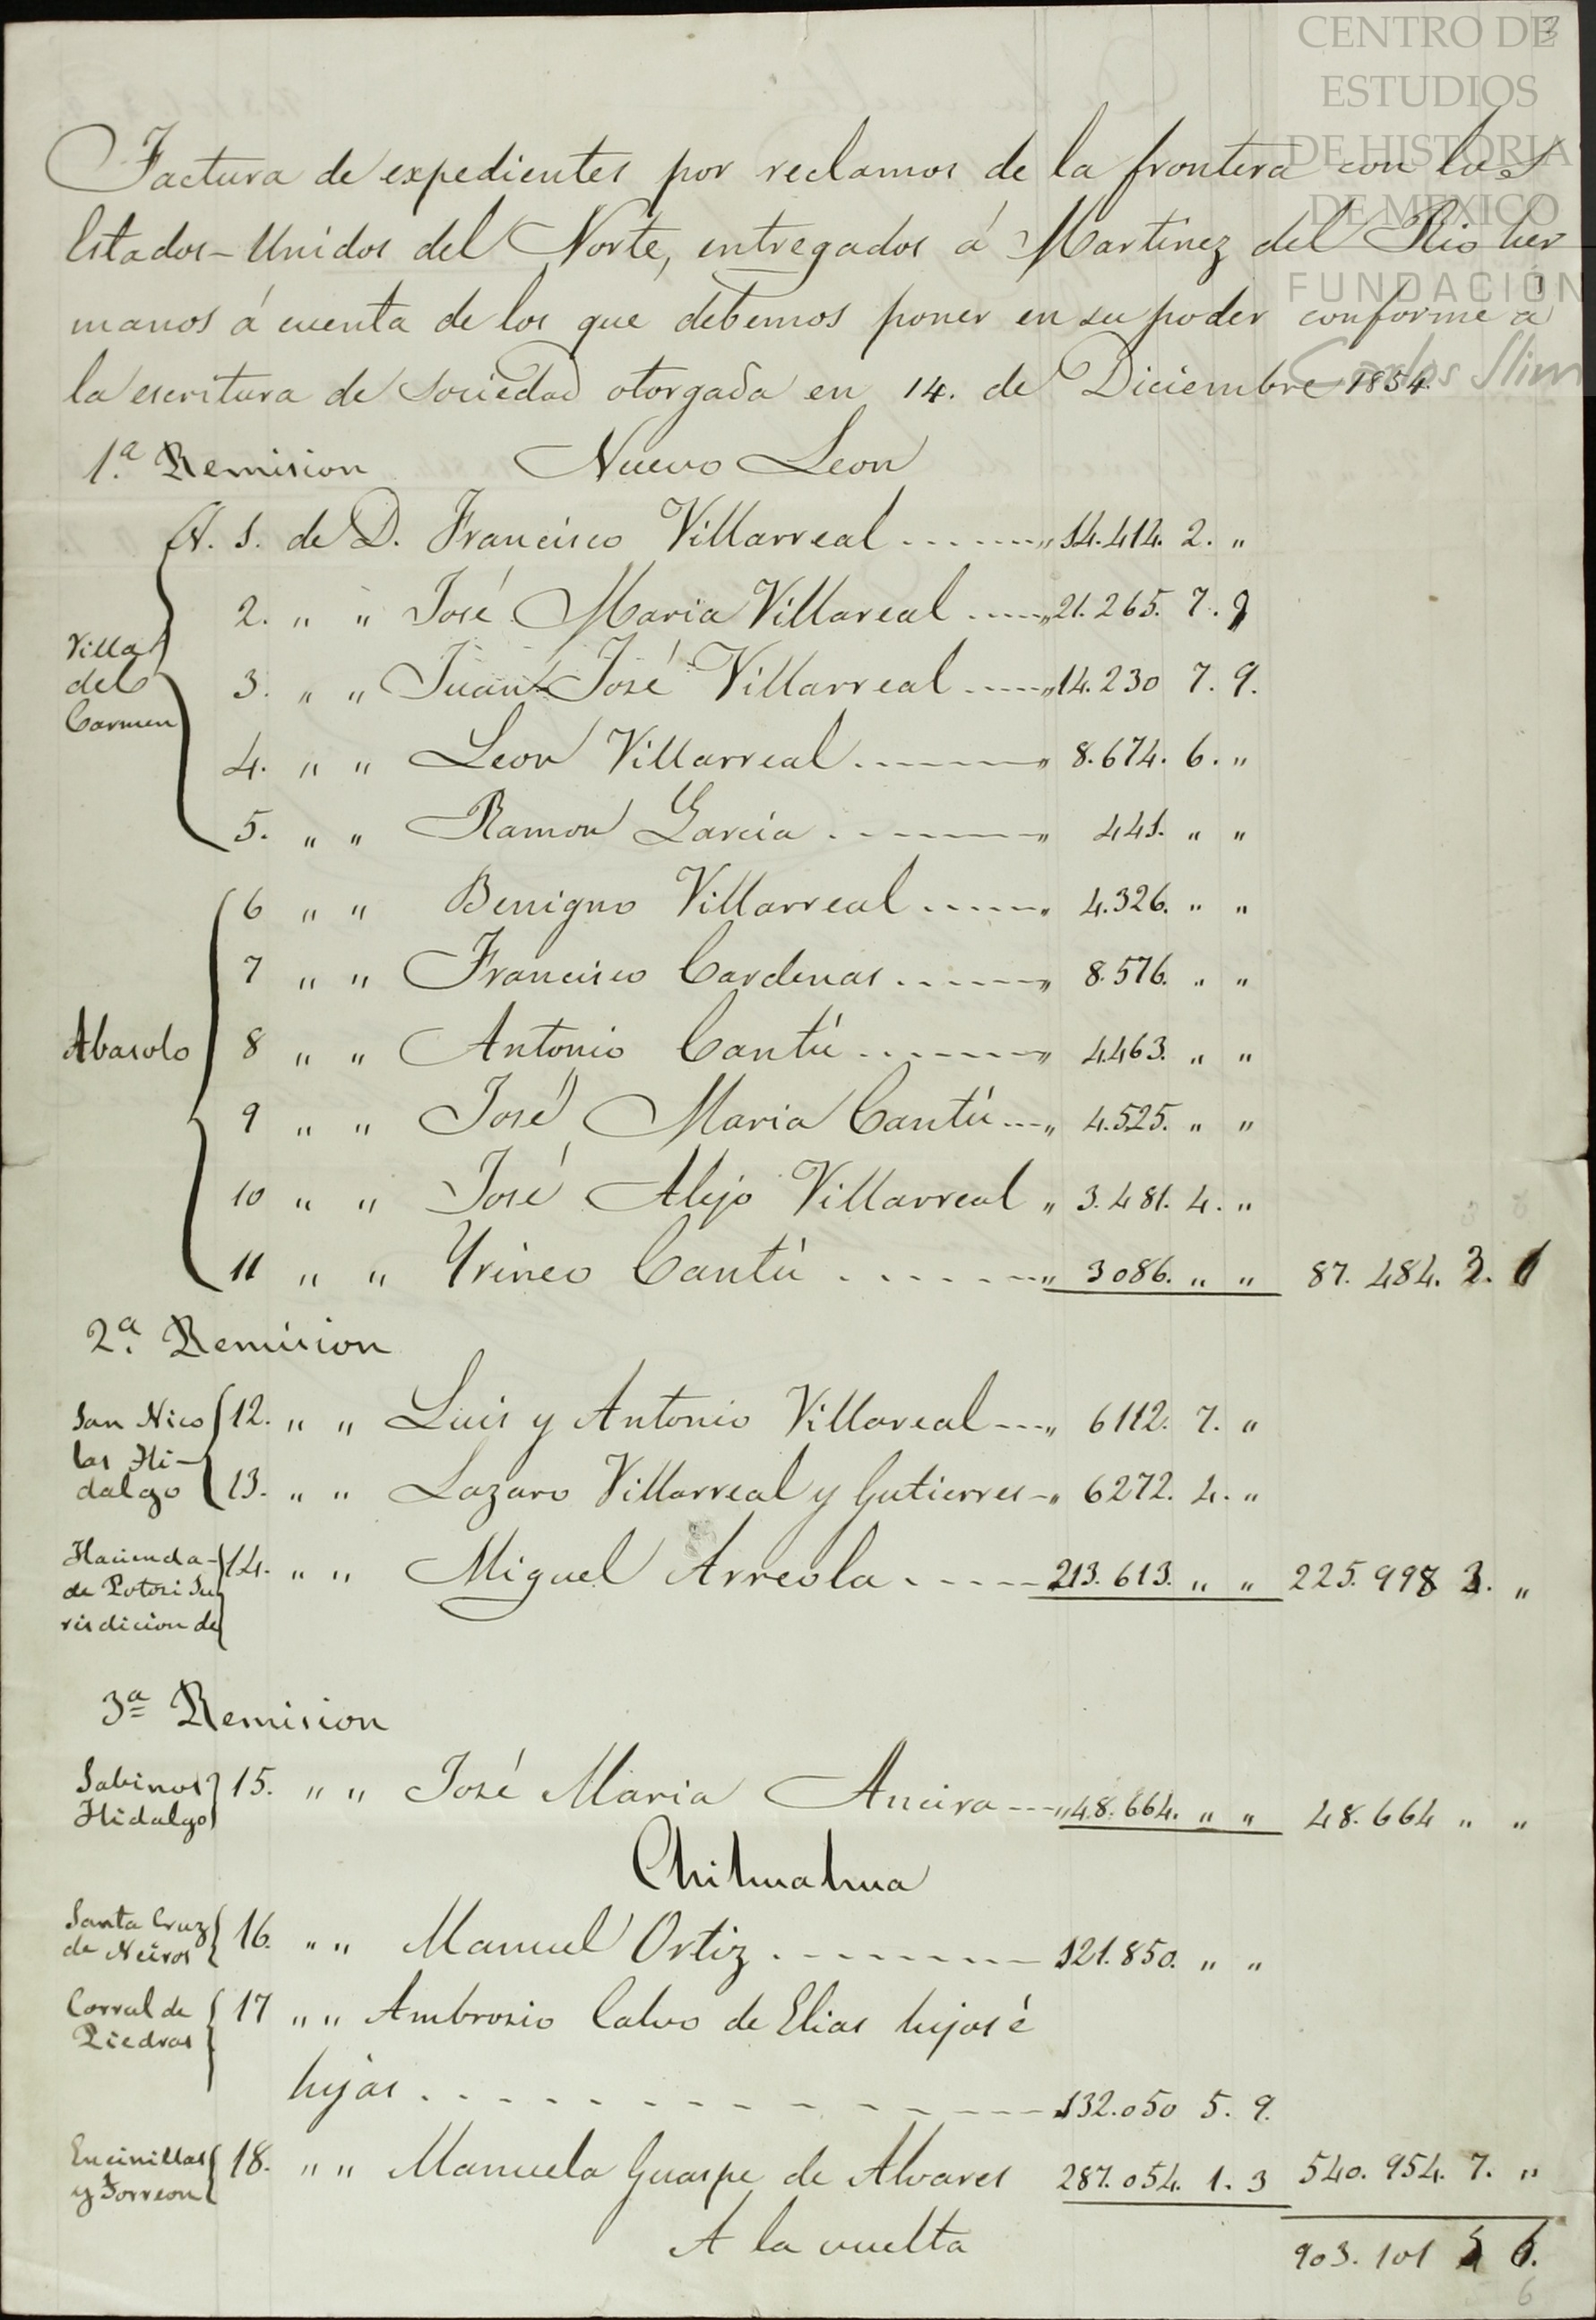 CENTRO DE
ESTUDIOS
DE HISTORIA
DE MEXICO
FUNDACIÓN
Carlos Slim
3
Factura de expedientes por reclamos de la frontera con los
Estados-Unidos del Norte, entregados á Martinez del Rio her
manos á cuenta de los que debemos poner en su poder conforme á
la escritura de Sociedad otorgada en 14. de Diciembre 1854.
1.ª Remision Nuevo Leon
Villa del Carmen
N. 1. de D. Francisco Villarreal ------ „ 14.414. 2. „
2. „ „ José Maria Villareal ----- „ 21.265. 7. 9
3. „ „ Juan José Villarreal ----- „ 14.230 7. 9.
4. „ „ Leon Villarreal -------- „ 8.674. 6. „
5. „ „ Ramon Garcia -------- „ 441. „ „
Abasolo
6 „ „ Benigno Villarreal ------ „ 4.326. „ „
7 „ „ Francisco Cardenas ------ „ 8.576. „ „
8 „ „ Antonio Cantú ------- „ 4.463. „ „
9 „ „ José Maria Cantú --- „ 4.525. „ „
10 „ „ José Alejo Villarreal „ 3.481. 4. „
11 „ „ Yrineo Cantú ------- „ 3086. „ „ 87.484. 3.
2.ª Remision
San Nico
las Hi-
dalgo
12. „ „ Luis y Antonio Villareal --- „ 6112. 7. „
13. „ „ Lazaro Villarreal y Gutierres - „ 6272. 4. „
Hacienda
de Potosi Ju
risdicion de
14. „ „ Miguel Arreola ----- 213.613. „ „ 225.998 3. „
3ª Remision
Sabinos
Hidalgo
15. „ „ José Maria Ancira --- „ 48.664. „ „ 48.664 „ „
Chihuahua
Santa Cruz
de Neiros
16. „ „ Manuel Ortiz -------- 121.850. „ „
Corral de
Piedras
17 „ „ Ambrosio Calvo de Elias hijos é
hijas ------------- 132.050 5. 9.
Encinillas
y Torreon
18. „ „ Manuela Guaspe de Alvares 287.054. 1. 3 540.954. 7. „
A la vuelta 903.101 5 6.
6